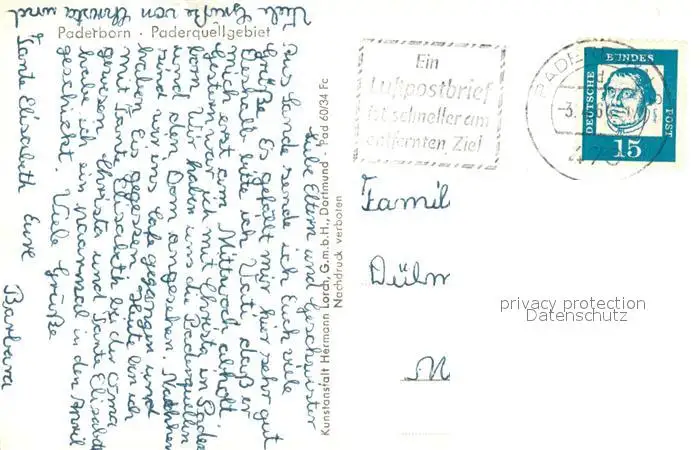 Paderborn · Paderquellgebiet
Liebe Eltern und Geschwister
Aus Sande sende ich Euch viele
Grüße. Es gefällt mir hier sehr gut
Deshalb bitte ich Vati, daß er
mich erst am Mittwoch abholt.
Gestern war ich mit Christa in Pader
born. Wir haben uns die Paderquellen
und den Dom angesehen. Nachher
sind wir ins Cafe gegangen und
haben Eis gegessen. Heute bin ich
mit Tante Elisabeth bei der Oma
gewesen. Christa und Tante Elisabeth
habe ich ein paarmal in den April
geschickt. Viele Grüße
Tante Elisabeth Eure
Barbara
Viele Grüße von Christa und
Kunstanstalt Hermann Lorch, G.m.b.H., Dortmund · Pad 60/34 Fc
Nachdruck verboten
Ein
Luftpostbrief
ist schneller am
entfernten Ziel
PADE
-3.
479
DEUTSCHE BUNDES POST
15
Famil
Dülm
privacy protection
Datenschutz